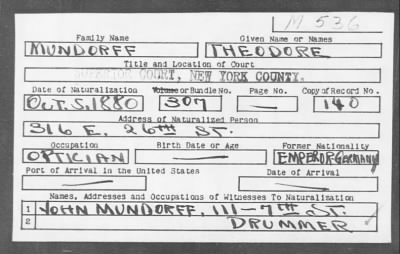 M 536
Family Name Given Name or Names
MUNDORFF THEODORE
Title and Location of Court
SUPERIOR COURT, NEW YORK COUNTY.
Date of Naturalization Volume or Bundle No. Page No. Copy of Record No.
Oct. 5. 1880 307 — 140
Address of Naturalized Person
316 E. 26TH ST.
Occupation Birth Date or Age Former Nationality
OPTICIAN — EMPEROR GERMANY
Port of Arrival in the United States Date of Arrival
— —
Names, Addresses and Occupations of Witnesses To Naturalization
1 JOHN MUNDORFF, 111–7TH ST.
2 DRUMMER